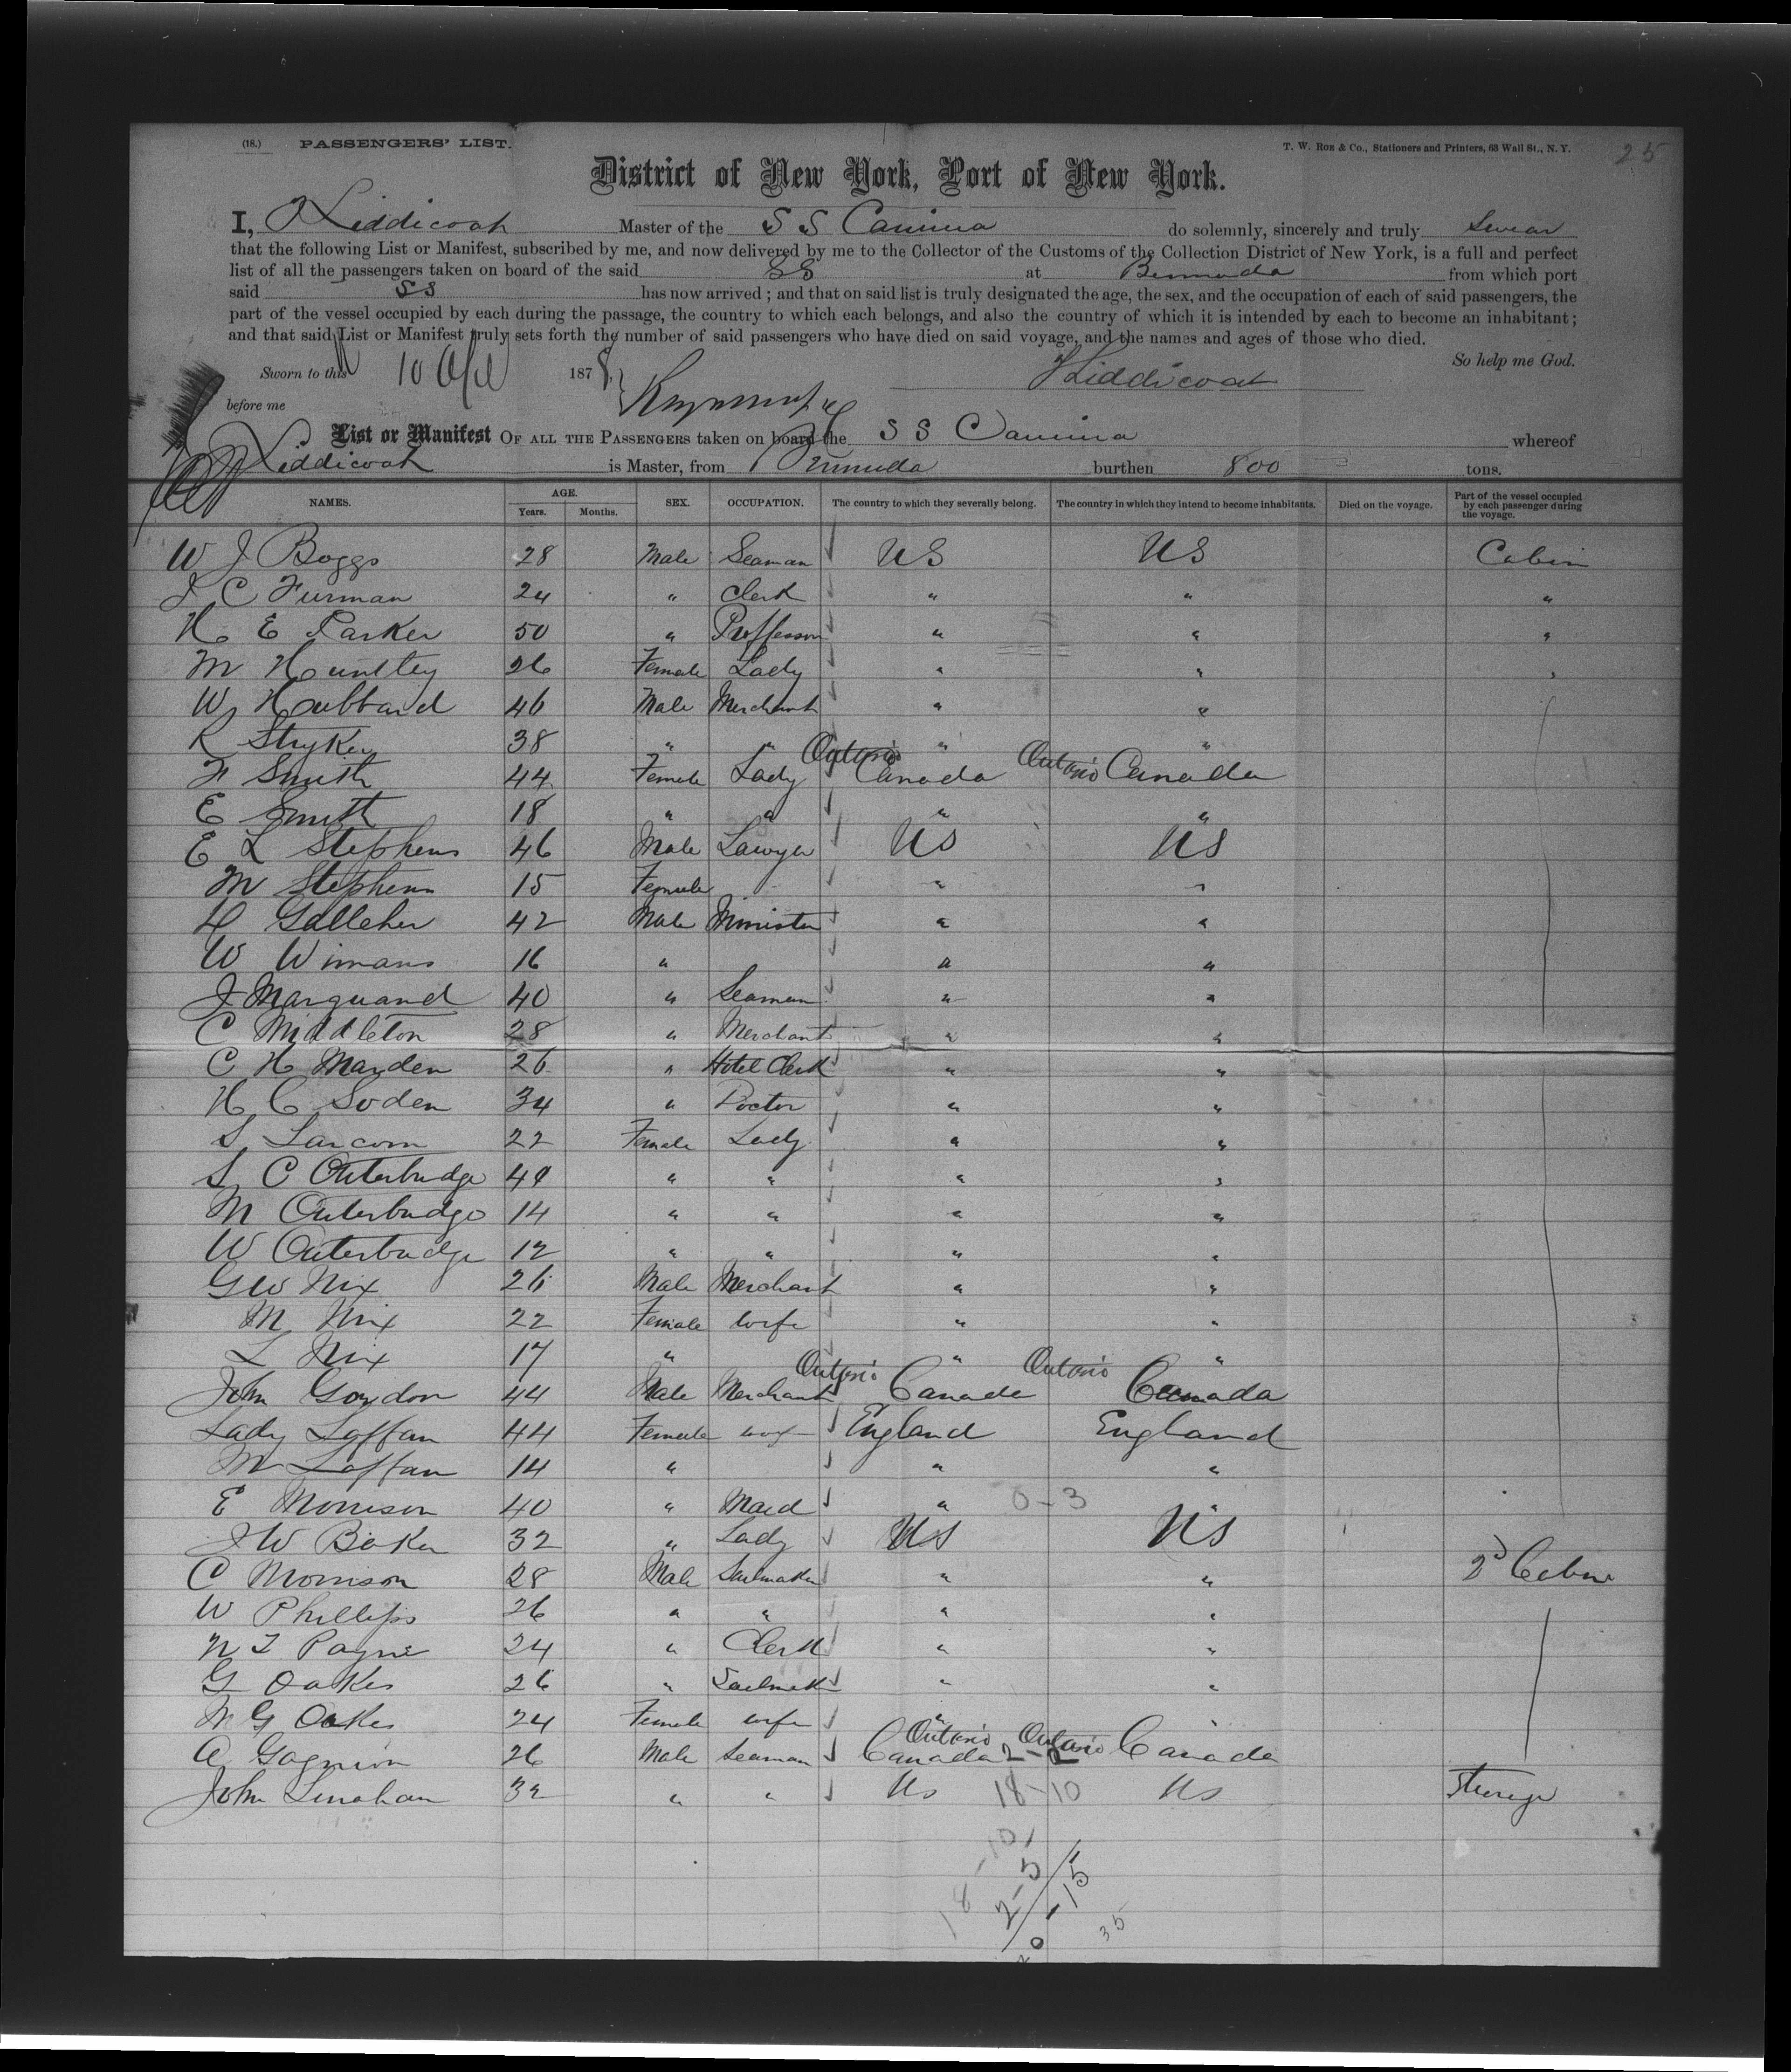 (18.) PASSENGERS' LIST. T. W. Ron & Co., Stationers and Printers, 63 Wall St., N. Y. 25
District of New York, Port of New York.
I, J Liddicoat Master of the S S Canima do solemnly, sincerely and truly swear
that the following List or Manifest, subscribed by me, and now delivered by me to the Collector of the Customs of the Collection District of New York, is a full and perfect
list of all the passengers taken on board of the said SS at Bermuda from which port
said SS has now arrived ; and that on said list is truly designated the age, the sex, and the occupation of each of said passengers, the
part of the vessel occupied by each during the passage, the country to which each belongs, and also the country of which it is intended by each to become an inhabitant ;
and that said List or Manifest truly sets forth the number of said passengers who have died on said voyage, and the names and ages of those who died.
So help me God.
Sworn to this 10 Apl 1878, J Liddicoat
before me
List or Manifest OF ALL THE PASSENGERS taken on board the S S Canima whereof
J Liddicoat is Master, from Bermuda burthen 800 tons.
NAMES. AGE. Years. Months. SEX. OCCUPATION. The country to which they severally belong. The country in which they intend to become inhabitants. Died on the voyage. Part of the vessel occupied by each passenger during the voyage.
W J Boggs 28 Male Seaman US US Cabin
J C Furman 24 " Clerk " " "
H E Parker 50 " Proffessor " " "
M Huntley 26 Female Lady " " "
W Hubbard 46 Male Merchant " "
R Stryker 38 " " " "
F Smith 44 Female Lady Ontario Canada Ontario Canada
E Smith 18 " " " "
E L Stephens 46 Male Lawyer US US
M Stephens 15 Female " "
H Galleher 42 Male Minister " "
W Wimans 16 " " "
J Marquand 40 " Seaman " "
C Middleton 28 " Merchant " "
C H Marden 26 " Hotel Clerk " "
H C Soden 34 " Doctor " "
S Larcom 22 Female Lady " "
S C Outerbridge 49 " " " "
M Outerbridge 14 " " " "
W Outerbridge 12 " " " "
Geo Nix 26 Male Merchant " "
M Nix 22 Female wife " "
L Nix 17 " " "
John Gordon 44 Male Merchant Ontario Canada Ontario Canada
Lady Laffan 44 Female wife England England
M Laffan 14 " " "
E Morrison 40 " Maid " 0-3 "
J W Baker 32 " Lady US US
C Morrison 28 Male Sailmaker " " 2d Cabin
W Phillips 26 " " " "
N T Payne 24 " Clerk " "
G Oakes 26 " Sailmak " "
M G Oakes 24 Female wife " "
A Gagnion 26 Male Seaman Ontario Canada 2-2 Ontario Canada
John Linahan 32 " " US 18-10 US Steerage
18-10
2-5
20-15
35